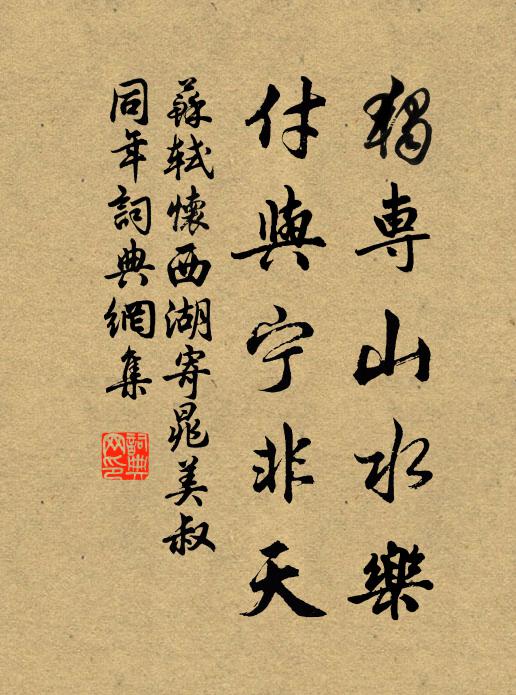 獨專山水樂
付與宁非天
蘇軾懷西湖寄晁美叔
同年詞典網集
詞典
网印